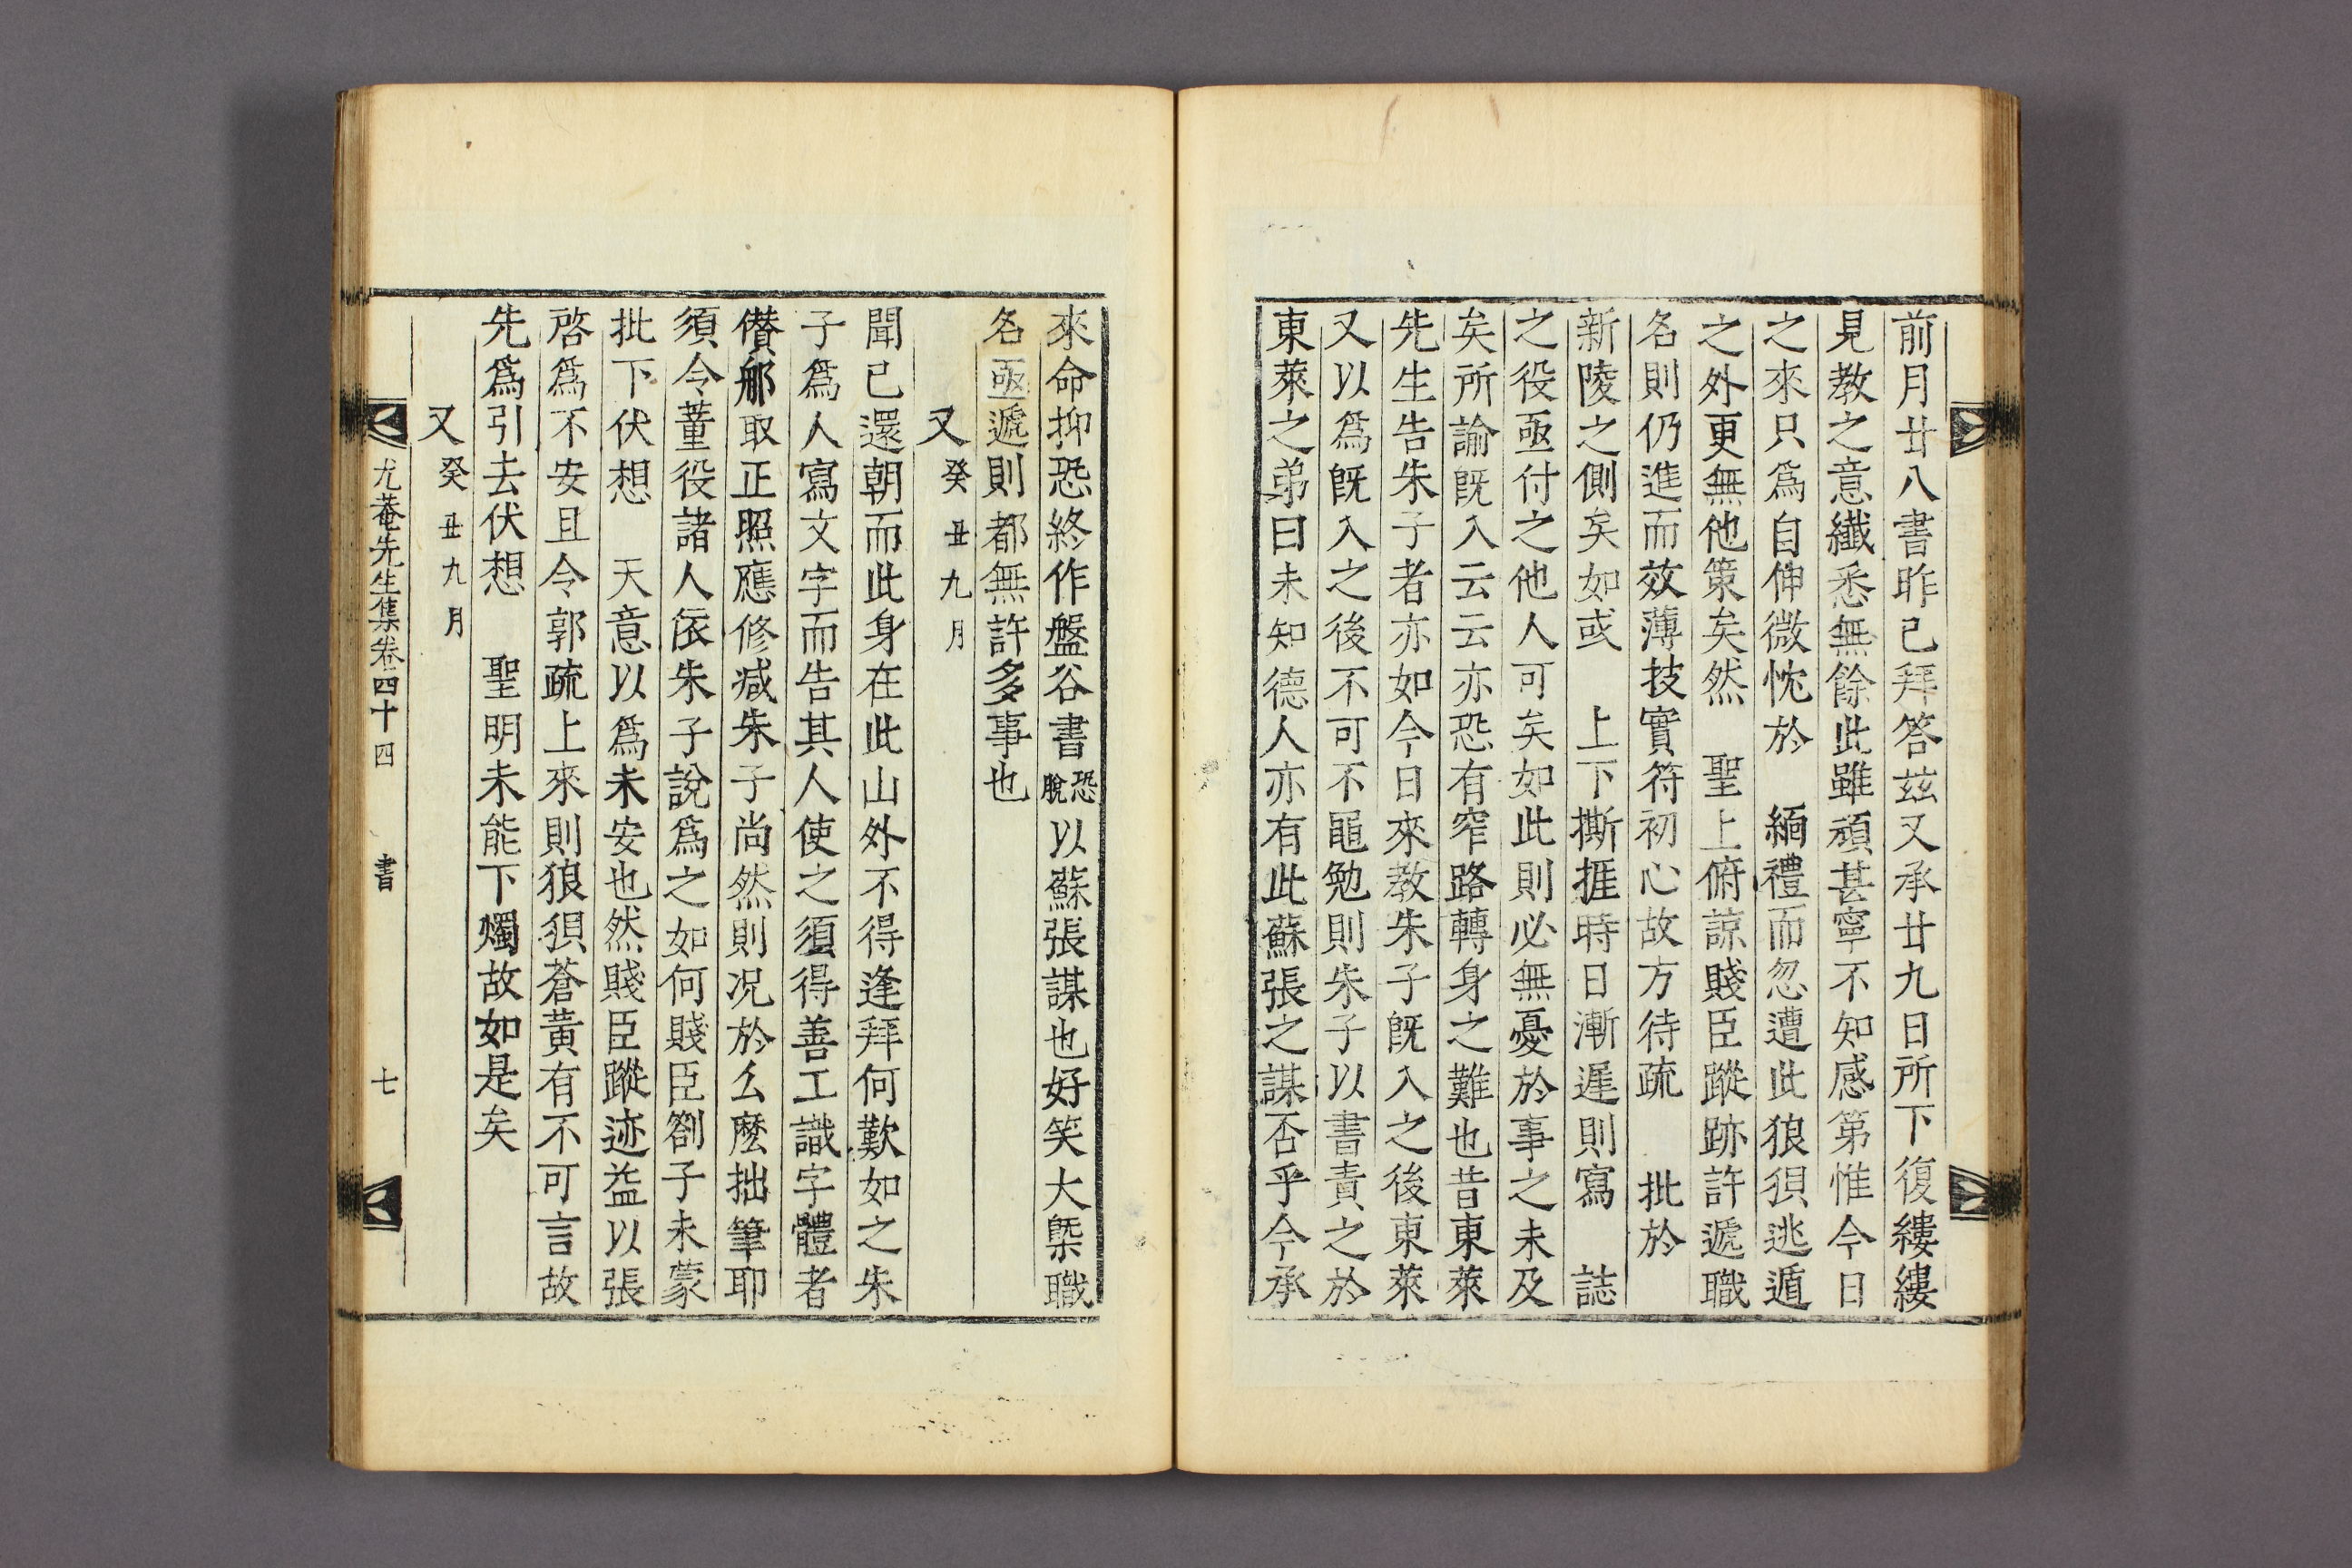 前月廿八書昨已拜答玆又承廿九日所下復縷縷
見敎之意纖悉無餘此雖頑甚寧不知感第惟今日
之來只爲自伸微忱於　緬禮而忽遭此狼狽逃遁
之外更無他策矣然　聖上俯諒賤臣蹤跡許遞職
名則仍進而效薄技實符初心故方待疏　批於
新陵之側矣如或　上下撕捱時日漸遲則寫　誌
之役亟付之他人可矣如此則必無憂於事之未及
矣所諭旣入云云亦恐有窄路轉身之難也昔東萊
先生告朱子者亦如今日來敎朱子旣入之後東萊
又以爲旣入之後不可不黽勉則朱子以書責之於
東萊之弟曰未知德人亦有此蘇張之謀否乎今承
來命抑恐終作盤谷書恐脫以蘇張謀也好笑大槩職
名亟遞則都無許多事也
又癸丑九月
聞已還朝而此身在此山外不得逢拜何歎如之朱
子爲人寫文字而告其人使之須得善工識字體者
儧那取正照應修减朱子尙然則况於么麽拙筆耶
須令董役諸人依朱子說爲之如何賤臣劄子未蒙
批下伏想　天意以爲未安也然賤臣蹤迹益以張
啓爲不安且令郭疏上來則狼狽蒼黃有不可言故
先爲引去伏想　聖明未能下燭故如是矣
又癸丑九月
尤菴先生集卷四十四　書　七